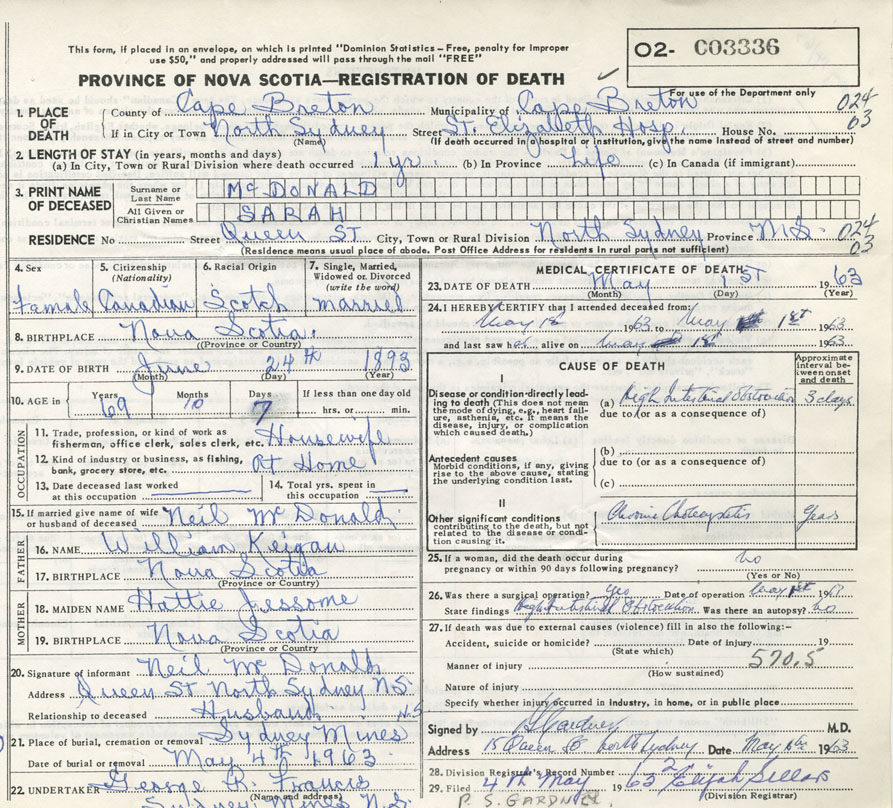 This form, if placed in an envelope, on which is printed "Dominion Statistics—Free, penalty for improper
use $50," and properly addressed will pass through the mail "FREE"
PROVINCE OF NOVA SCOTIA—REGISTRATION OF DEATH
O2- C03336
For use of the Department only
024
03
1. PLACE OF DEATH
County of Cape Breton Municipality of Cape Breton
If in City or Town North Sydney Street St. Elizabeth Hosp. House No.
(Name) (If death occurred in a hospital or institution, give the name instead of street and number)
2. LENGTH OF STAY (in years, months and days)
(a) In City, Town or Rural Division where death occurred 1 yr. (b) In Province Life (c) In Canada (if immigrant)
3. PRINT NAME OF DECEASED
Surname or Last Name McDONALD
All Given or Christian Names SARAH
RESIDENCE No Street Queen ST City, Town or Rural Division North Sydney Province N.S. 024
03
(Residence means usual place of abode. Post Office Address for residents in rural parts not sufficient)
4. Sex
Female
5. Citizenship (Nationality)
Canadian
6. Racial Origin
Scotch
7. Single, Married, Widowed or Divorced (write the word)
married
8. BIRTHPLACE Nova Scotia.
(Province or Country)
9. DATE OF BIRTH June 24th 1893
(Month) (Day) (Year)
10. AGE in Years 69 Months 10 Days 7 If less than one day old
hrs. or min.
OCCUPATION
11. Trade, profession, or kind of work as
fisherman, office clerk, sales clerk, etc. Housewife
12. Kind of industry or business, as fishing,
bank, grocery store, etc. At Home
13. Date deceased last worked
at this occupation
14. Total yrs. spent in
this occupation
15. If married give name of wife
or husband of deceased Neil McDonald
FATHER
16. NAME William Keigan
17. BIRTHPLACE Nova Scotia
(Province or Country)
MOTHER
18. MAIDEN NAME Hattie Jessome
19. BIRTHPLACE Nova Scotia
(Province or Country
20. Signature of informant Neil McDonald
Address Queen St North Sydney N.S.
Relationship to deceased Husband N.S
21. Place of burial, cremation or removal Sydney Mines
Date of burial or removal May 4th 1963
22. UNDERTAKER George R. Francis
(Name and address)
Sydney Mines N.S.
MEDICAL CERTIFICATE OF DEATH
23. DATE OF DEATH May 1ST 1963
(Month) (Day) (Year)
24. I HEREBY CERTIFY that I attended deceased from:
May 1st 1963 to May 1st 1963
and last saw her alive on May 1st 1963
CAUSE OF DEATH
Approximate interval between onset and death
I
Disease or condition directly leading to death (This does not mean the mode of dying, e.g., heart failure, asthenia, etc, it means the disease, injury, or complication which caused death.)
(a) High Intestinal Obstruction 3 days
due to (or as a consequence of)
Antecedent causes
Morbid conditions, if any, giving rise to the above cause, stating the underlying condition last.
(b)
due to (or as a consequence of)
(c)
II
Other significant conditions
contributing to the death, but not related to the disease or condition causing it.
Chronic Years
25. If a woman, did the death occur during
pregnancy or within 90 days following pregnancy? No
(Yes or No)
26. Was there a surgical operation? yes Date of operation May 1st 196
State findings High Intestinal Obstruction Was there an autopsy? No
27. If death was due to external causes (violence) fill in also the following:—
Accident, suicide or homicide? Date of injury 19
(State which)
Manner of injury 570.5
(How sustained)
Nature of injury
Specify whether injury occurred in industry, in home, or in public place
Signed by Gardner M.D.
Address 15 Queen St. North Sydney Date May 1963
28. Division Registrar's Record Number 2
29. Filed 4th May 1963 Elijah Sellars
(Division Registrar)
P. S. GARDNER